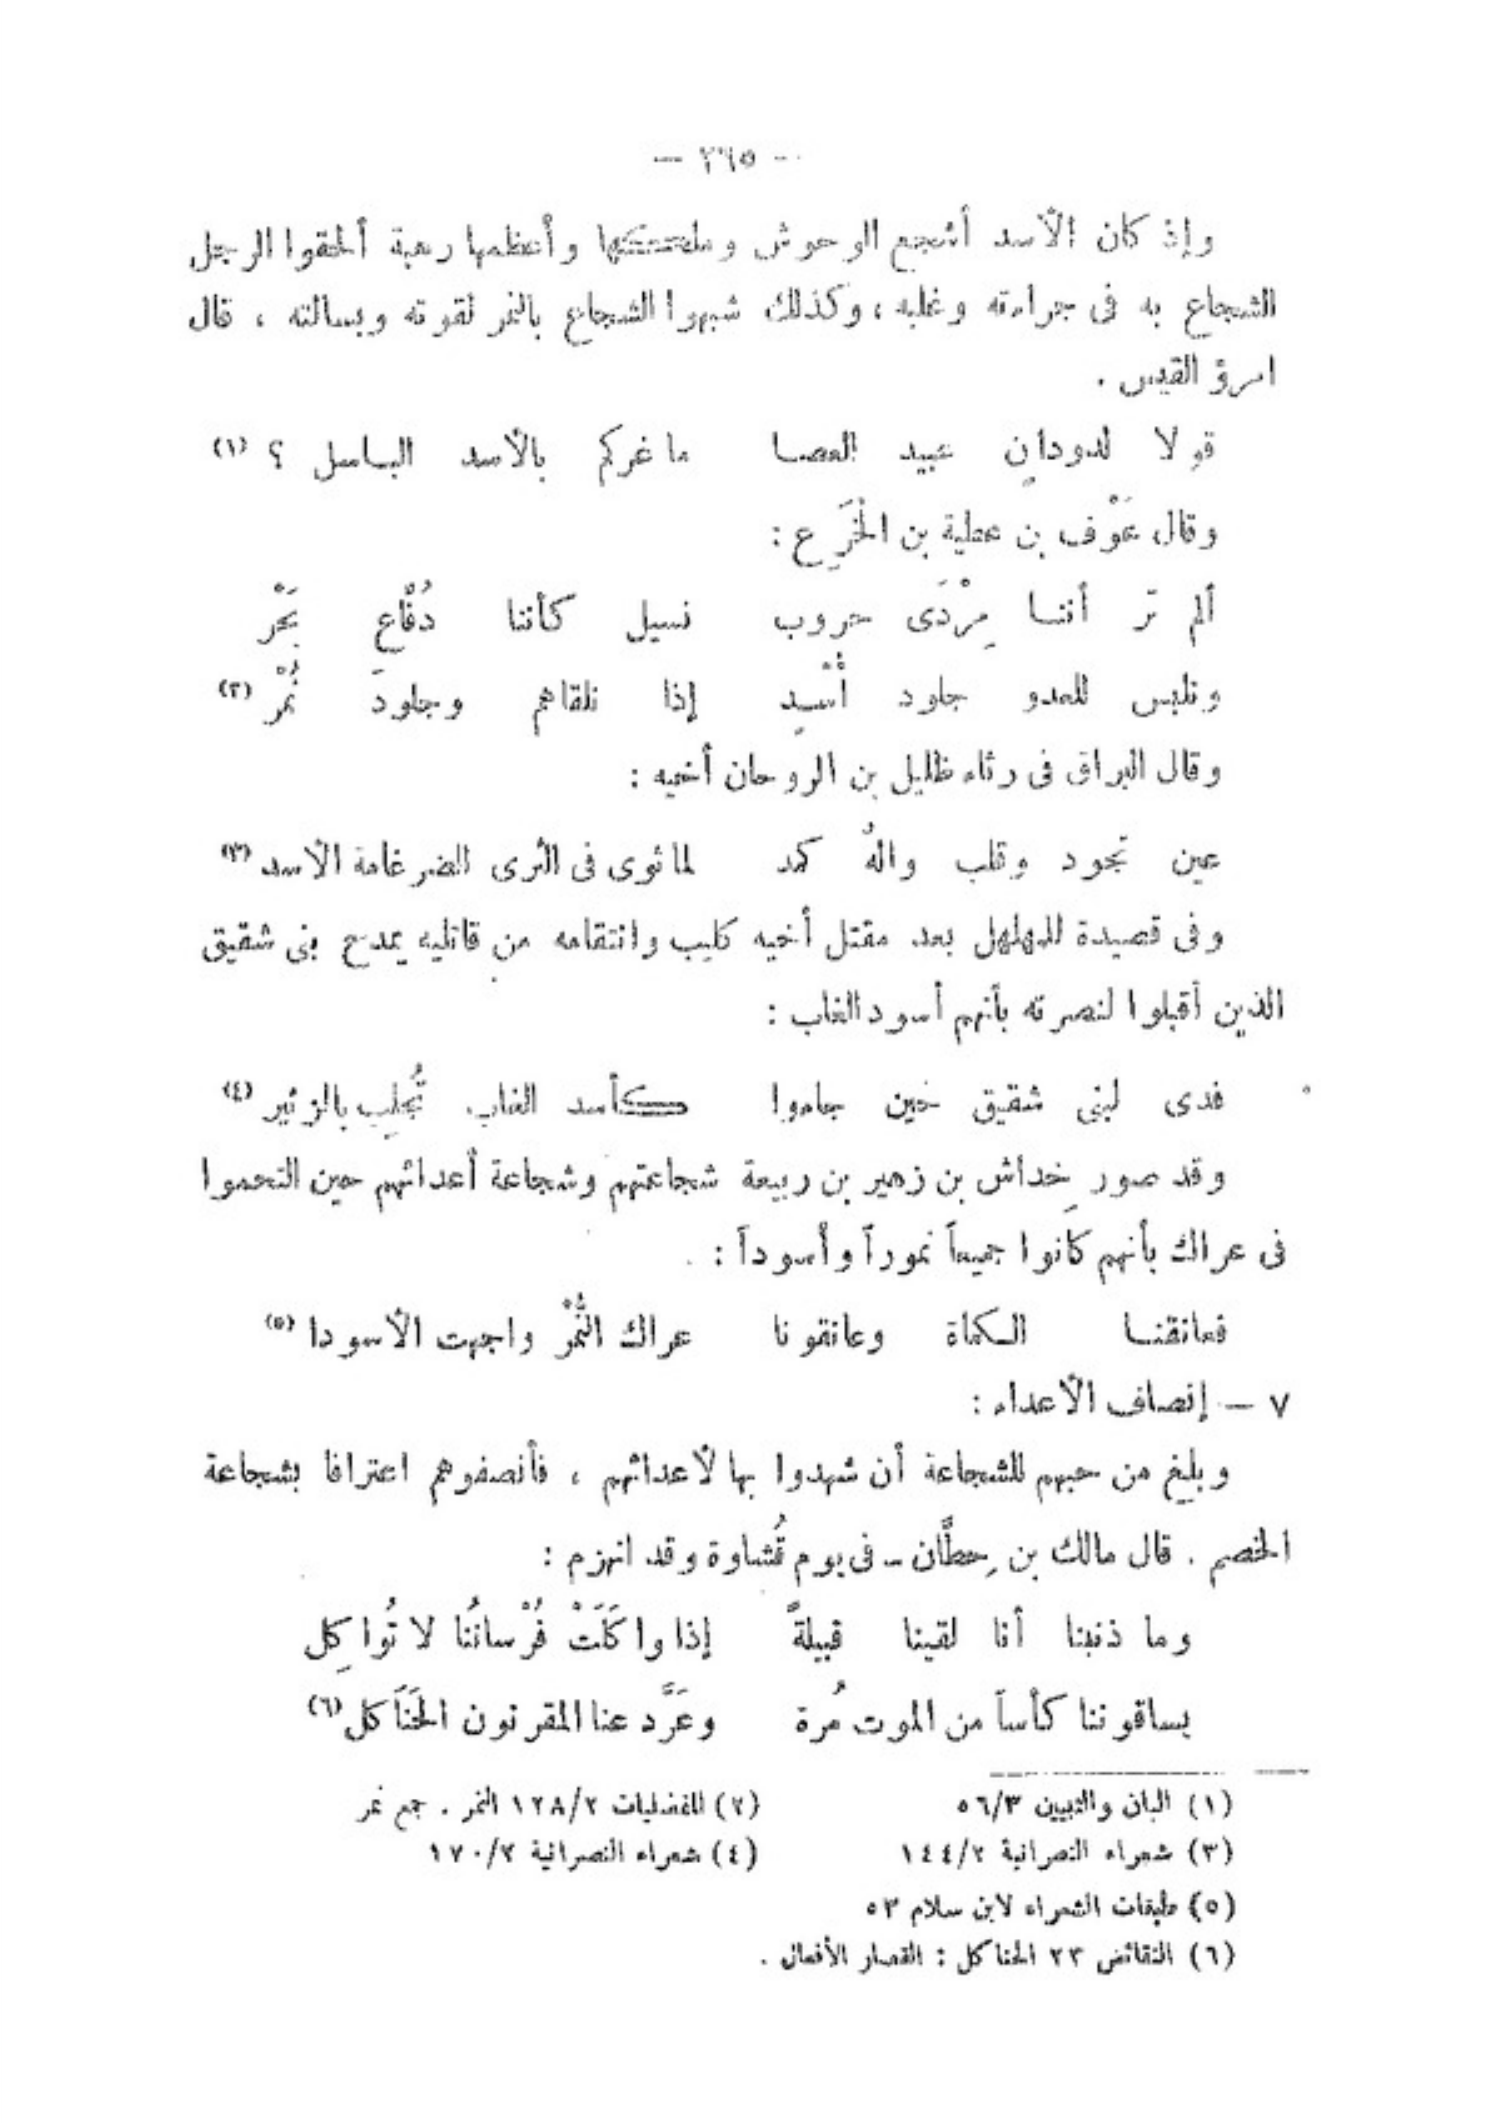 — ٢٦٥ —
وإذ كان الأسد أشجع الوحوش وأعظمها رهبة ألحقوا الرجل
الشجاع به فى جراءته وغلبه ، وكذلك شبهوا الشجاع بالنمر لقوته وبسالته ، قال
امرؤ القيس .
قولا لدودانِ عبيد العصا ما غركم بالأسد الباسل ؟ (١)
وقال عَوْف بن عطية بن الْخَرِع :
ألم تر أننا مِرْدَى حروب نسيل كأننا دُفَّاعِ بَحْر
ونلبس للعدو جلود أُسْدٍ إذا نلقاهم وجلودَ نُمْر (٢)
وقال البراق فى رثاء ظليل بن الروحان أخيه :
عين تجود وقلب والهُ كمد لما ثوى فى الثرى الضرغامة الأسد (٣)
وفى قصيدة للمهلهل بعد مقتل أخيه كليب وانتقامه من قاتليه يمدح بنى شقيق
الذين أقبلوا لنصرته بأنهم أسود الغاب :
فدى لبنى شقيق حين جاءوا كأسد الغاب تُجلِب بالزئير (٤)
وقد صور خِداش بن زهير بن ربيعة شجاعتهم وشجاعة أعدائهم حين التحموا
فى عراك بأنهم كانوا جميعاً نموراً وأسوداً :
فعانقنا الكماة وعانقونا عراك النُّمْر واجهت الأسودا (٥)
٧ — إنصاف الأعداء :
وبليغ من حبهم للشجاعة أن شهدوا بها لأعدائهم ، فأنصفوهم اعترافا بشجاعة
الخصم . قال مالك بن حِطَّان ـ فى يوم قُشاوة وقد انهزم :
وما ذنبنا أنا لقينا قبيلةً إذا واكَلَتْ فُرْسانُنا لا تُواكِل
يساقوننا كأساً من الموت مُرة وعَرَّد عنا المقرنون الحَنَاكل (٦)
(١) البان والتبيين ٥٦/٣ (٢) المفضليات ١٢٨/٢ النمر . جمع نمر
(٣) شعراء النصرانية ١٤٤/٢ (٤) شعراء النصرانية ١٧٠/٢
(٥) طبقات الشعراء لابن سلام ٥٣
(٦) النقائض ٢٣ الحناكل : القصار الأفعال .